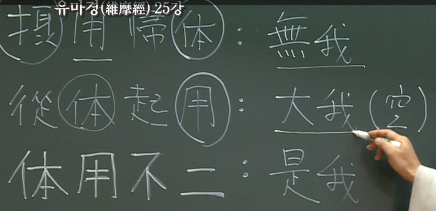 유마경(維摩經) 25강
摂用帰体 : 無我
從体起用 : 大我(空)
体用不二 : 是我